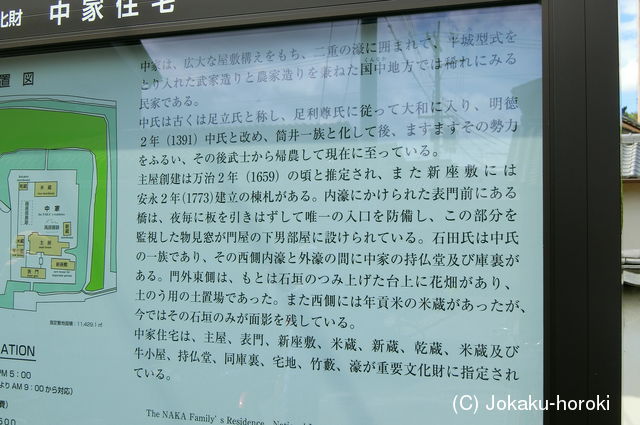 化財 中家住宅
置図
中家は、広大な屋敷構えをもち、二重の濠に囲まれて、平城型式を
とり入れた武家造りと農家造りを兼ねた国中地方では稀れにみる
民家である。
中氏は古くは足立氏と称し、足利尊氏に従って大和に入り、明徳
2年(1391)中氏と改め、筒井一族と化して後、ますますその勢力
をふるい、その後武士から帰農して現在に至っている。
主屋創建は万治2年(1659)の頃と推定され、また新座敷には
安永2年(1773)建立の棟札がある。内濠にかけられた表門前にある
橋は、夜毎に板を引きはずして唯一の入口を防備し、この部分を
監視した物見窓が門屋の下男部屋に設けられている。石田氏は中氏
の一族であり、その西側内濠と外濠の間に中家の持仏堂及び庫裏が
ある。門外東側は、もとは石垣のつみ上げた台上に花畑があり、
土のう用の土置場であった。また西側には年貢米の米蔵があったが、
今ではその石垣のみが面影を残している。
中家住宅は、主屋、表門、新座敷、米蔵、新蔵、乾蔵、米蔵及び
牛小屋、持仏堂、同庫裏、宅地、竹藪、濠が重要文化財に指定され
ている。
中家
米蔵
主屋
表門
指定敷地面積:11,429.1㎡
ATION
PM 5:00
よりAM 9:00から対応)
費)
500
The NAKA Family's Residence, National
(C) Jokaku-horoki